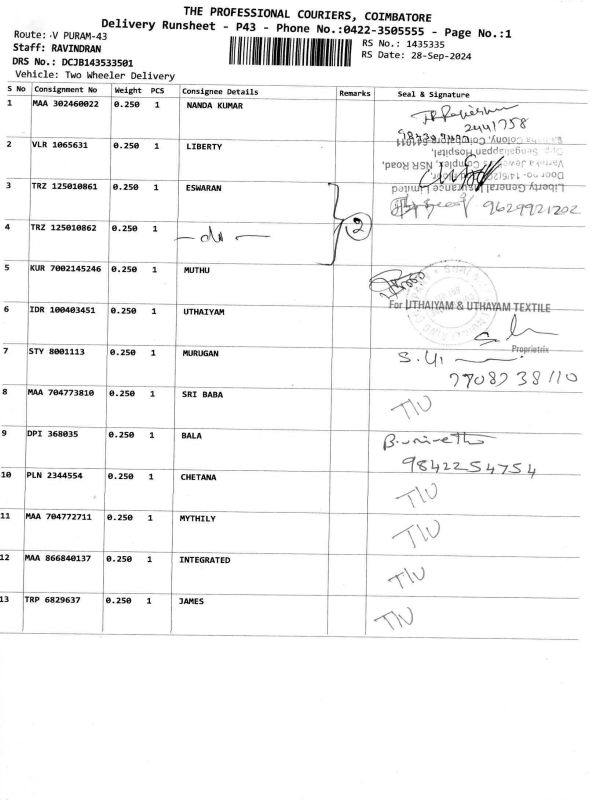 THE PROFESSIONAL COURIERS, COIMBATORE
Delivery Runsheet - P43 - Phone No.:0422-3505555 - Page No.:1
Route: V PURAM-43
RS No.: 1435335
Staff: RAVINDRAN
RS Date: 28-Sep-2024
DRS No.: DCJB143533501
Vehicle: Two Wheeler Delivery
S No Consignment No Weight PCS Consignee Details Remarks Seal & Signature
1 MAA 302460022 0.250 1 NANDA KUMAR
2441758
2 VLR 1065631 0.250 1 LIBERTY
Liberty General Insurance Limited
3 TRZ 125010861 0.250 1 ESWARAN
9629921202
4 TRZ 125010862 0.250 1 - do - 2
5 KUR 7002145246 0.250 1 MUTHU
6 IDR 100403451 0.250 1 UTHAIYAM
For UTHAIYAM & UTHAYAM TEXTILE
Proprietrix
7 STY 8001113 0.250 1 MURUGAN
8 MAA 704773810 0.250 1 SRI BABA T/U
9 DPI 368035 0.250 1 BALA
9842254754
10 PLN 2344554 0.250 1 CHETANA T/U
11 MAA 704772711 0.250 1 MYTHILY T/U
12 MAA 866840137 0.250 1 INTEGRATED T/U
13 TRP 6829637 0.250 1 JAMES T/U